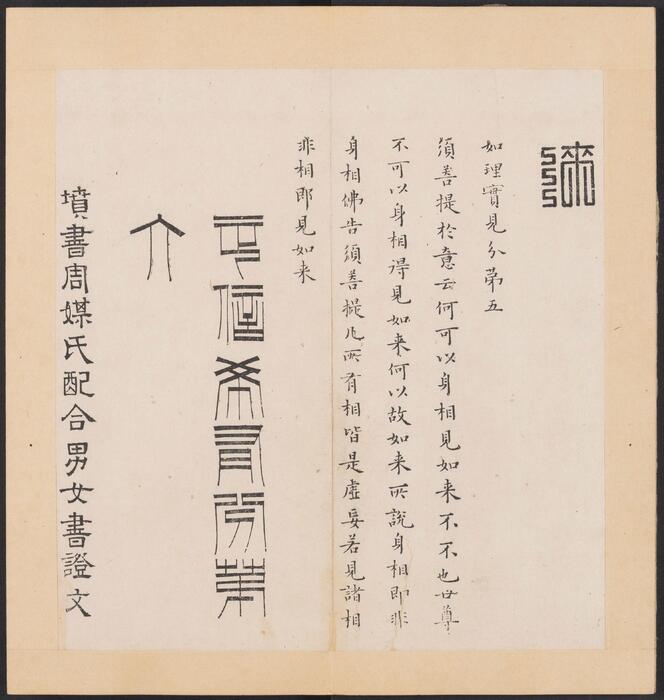 如理實見分第五
須菩提於意云何可以身相見如来不不也世尊
不可以身相得見如来何以故如来所說身相即非
身相佛告須菩提凡所有相皆是虛妄若見諸相
非相即見如来
正信希有分第
六
墳書周媒氏配合男女書證文